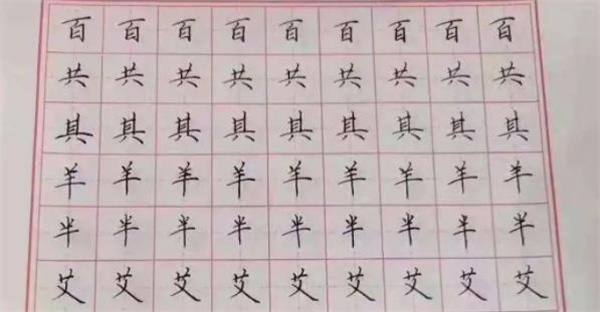 百 百 百 百 百 百 百 百 百
共 共 共 共 共 共 共 共 共
其 其 其 其 其 其 其 其 其
羊 羊 羊 羊 羊 羊 羊 羊 羊
半 半 半 半 半 半 半 半 半
艾 艾 艾 艾 艾 艾 艾 艾 艾